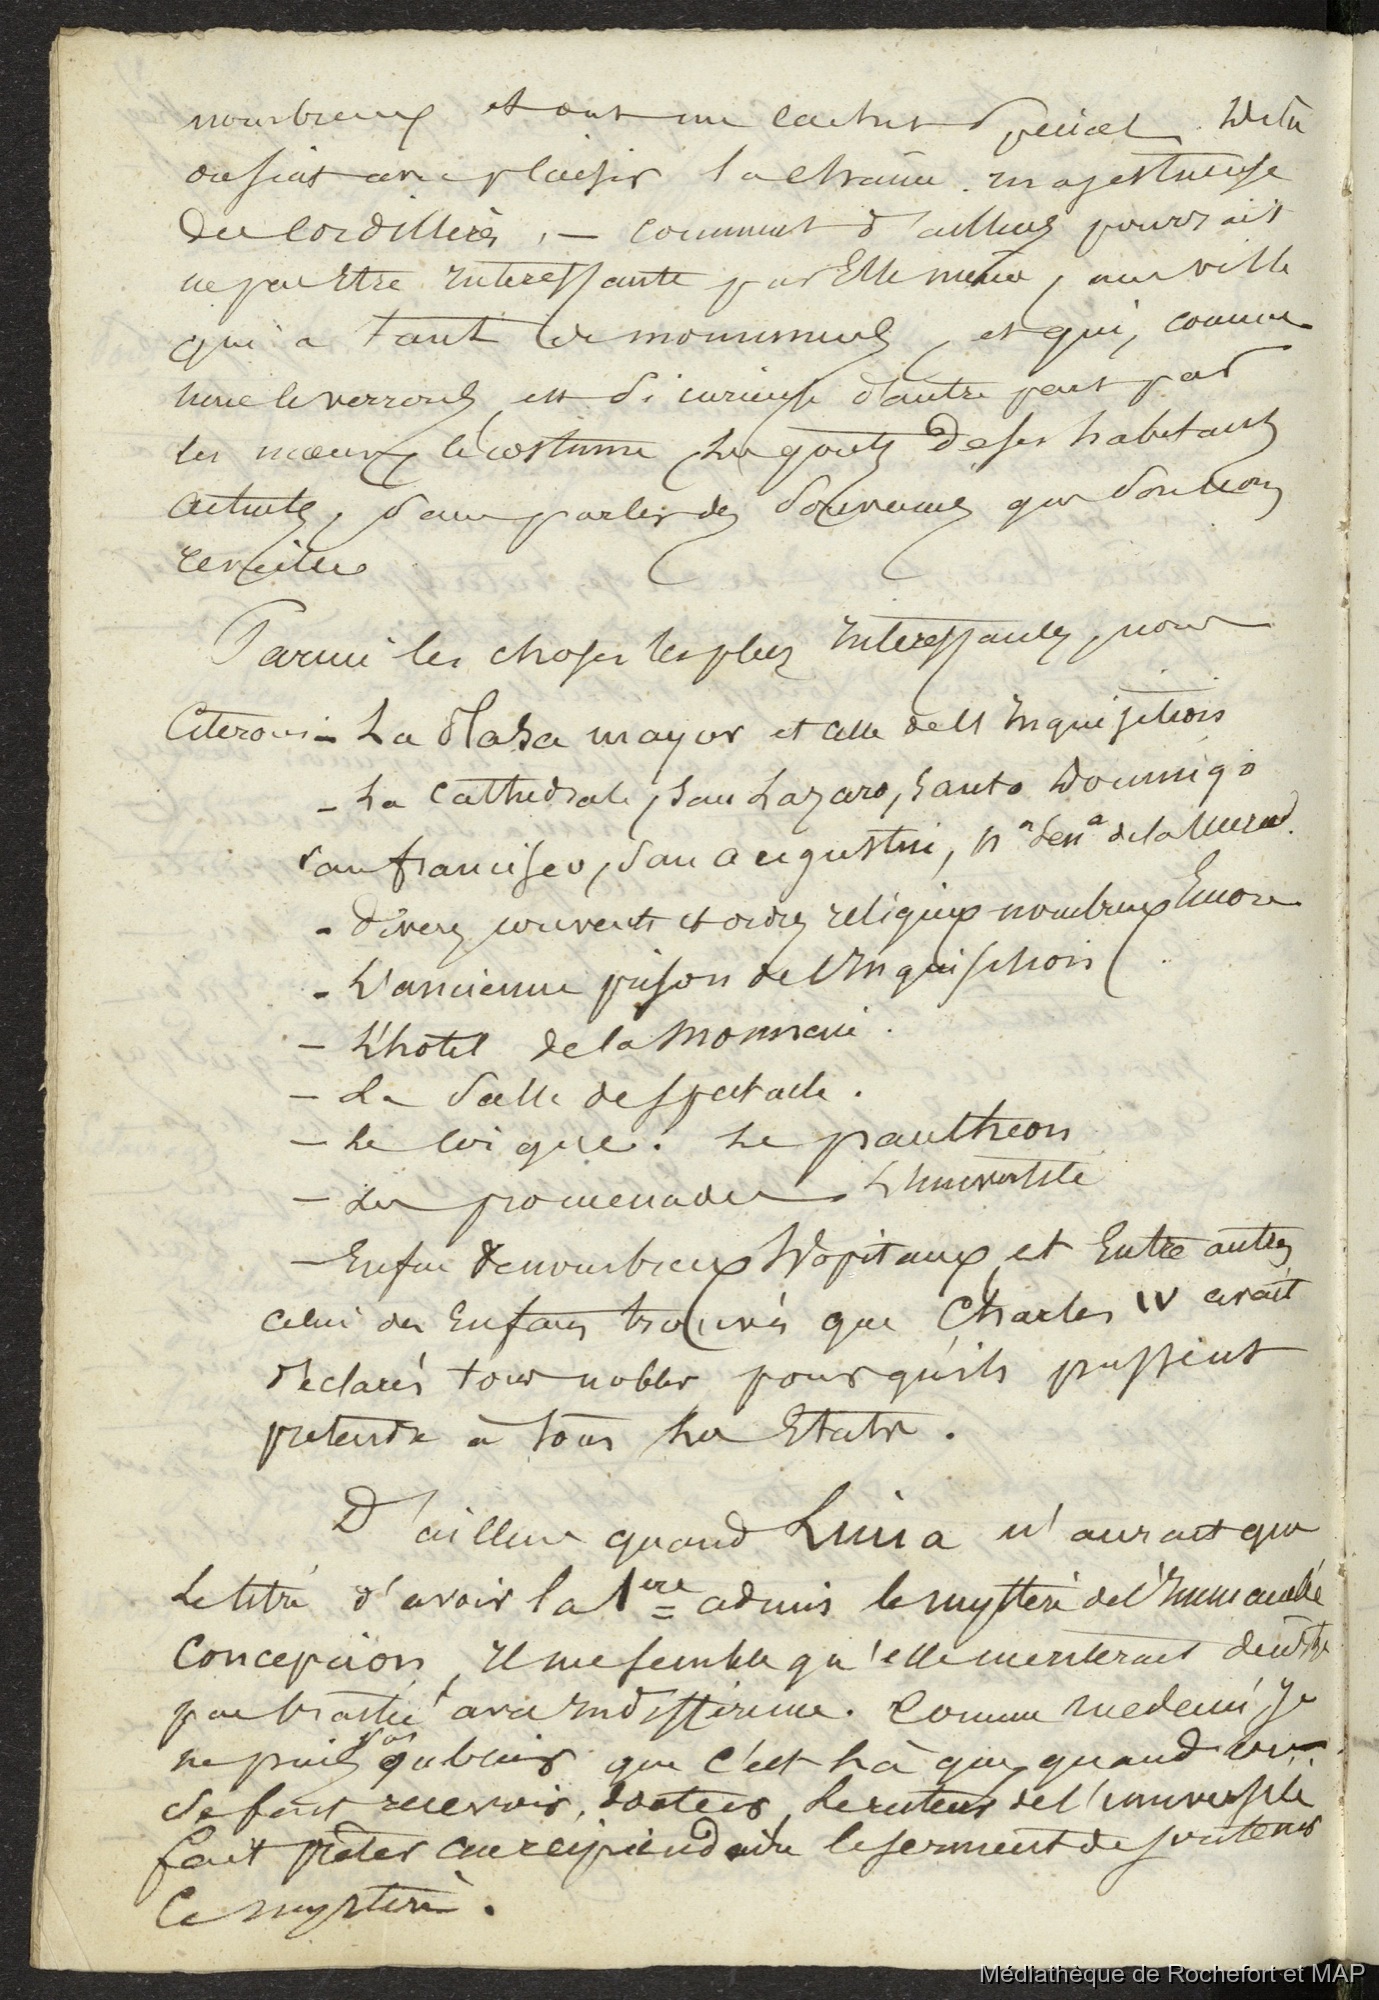 nombreux et ont un cachet spécial. De là
on suit avec plaisir la chaîne majestueuse
des Cordillières, — comment d'ailleurs pourrait
ne pas être interessante par elle même, une ville
qui a tant de monumens, et qui, comme
nous le verrons, est si curieuse d'autre part par
les mœurs, le costume, les goûts de ses habitants
actuels, sans parler des souvenirs que son nom
reveille
Parmi les choses les plus interessantes, nous
Citerons — La Plaza mayor et celle de l'Inquisition
- La Cathedrale, San Lazaro, Santo Domingo
San francisco, San Augustin, Nª Senª de la Merced.
- Divers couvents et ordres religieux nombreux Encore
- L'ancienne prison de l'Inquisition
- L'hotel de la Monnaie.
- La Salle de spectacle.
- Le Cirque. Le pantheon
- Les promenades. L'université
- Enfin de nombreux Hopitaux, et Entre autres
celui des Enfans trouvés que Charles IV avait
déclarés tous nobles pour qu'ils pussent
pretendre à tous les Etats.
D'ailleurs quand Lima n'aurait que
le titre d'avoir la 1ere admis le mystère de l'Immaculée
Conception, Il me semble qu'elle meriterait de n'être
pas traitée avec indifference. Comme medecin, Je
ne puis pas oublier que c'est là que, quand on
se fait recevoir docteur, le recteur de l'université
fait prêter au recipiendaire le serment de soutenir
ce mystère.
Médiathèque de Rochefort et MAP